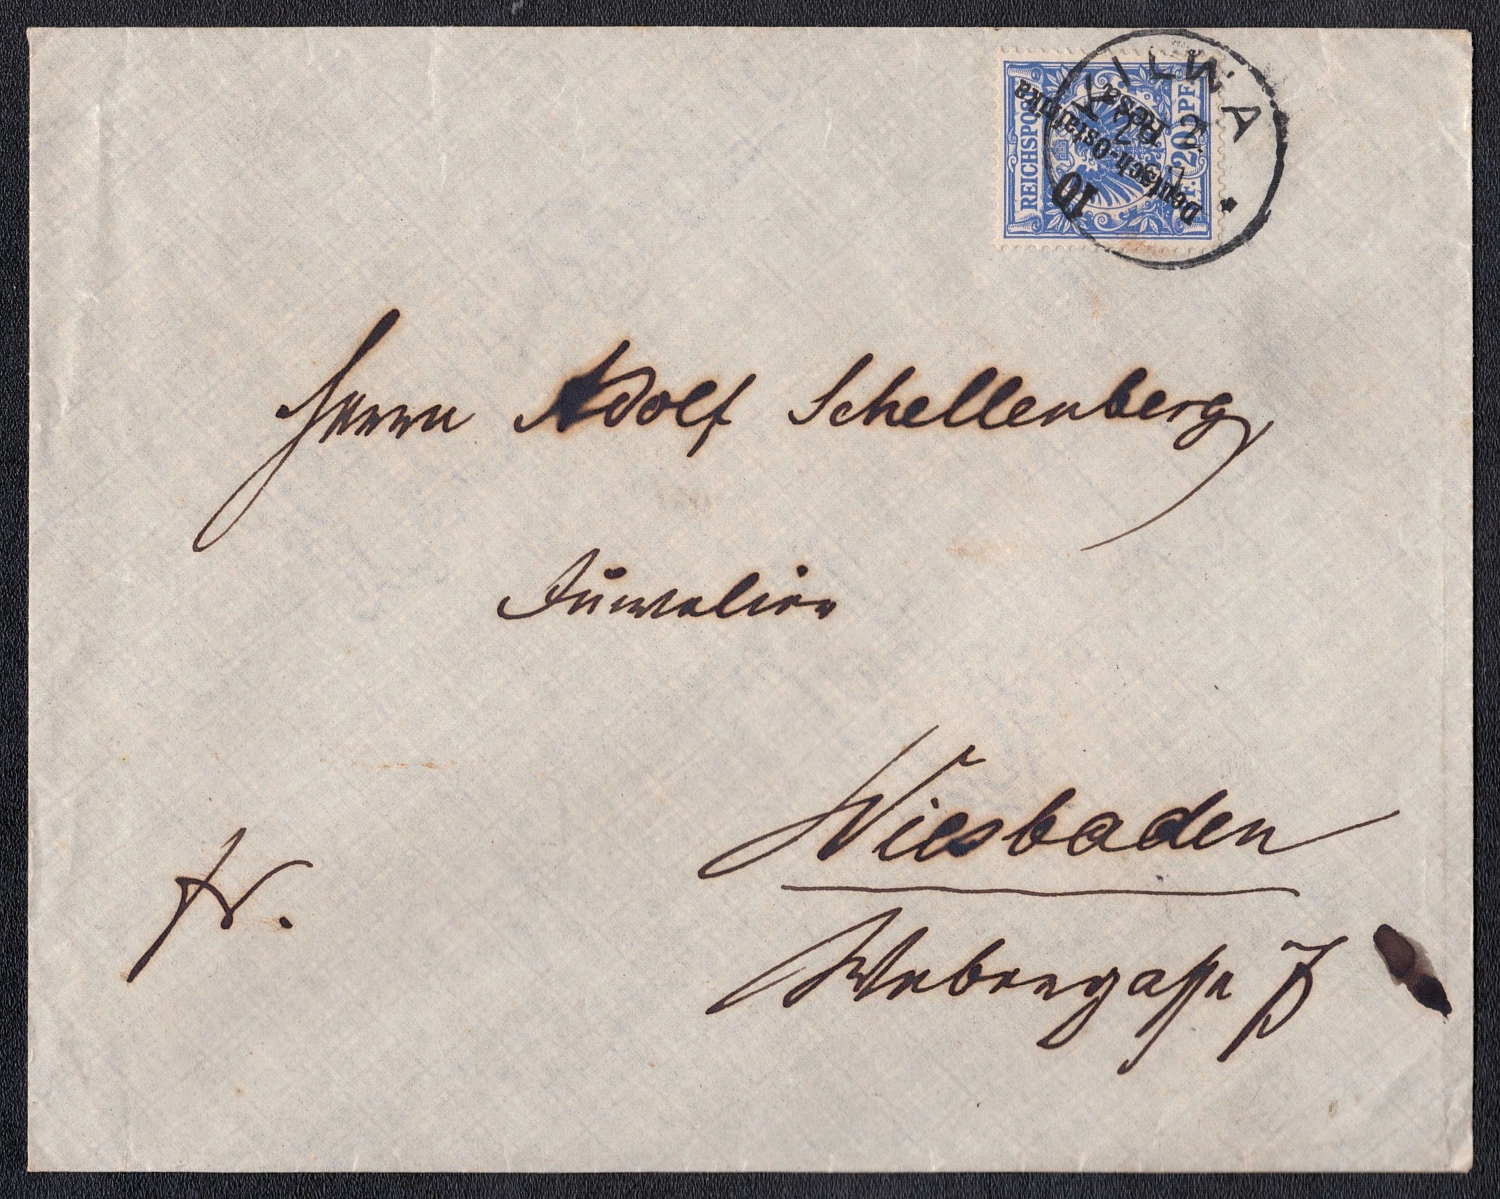 KILWA
REICHSPOST
20 PF.
PF. 20
Deutsch-Ostafrika
10 Pesa
Herrn Adolf Schellenberg
Juwelier
Wiesbaden
Webergasse
fr.